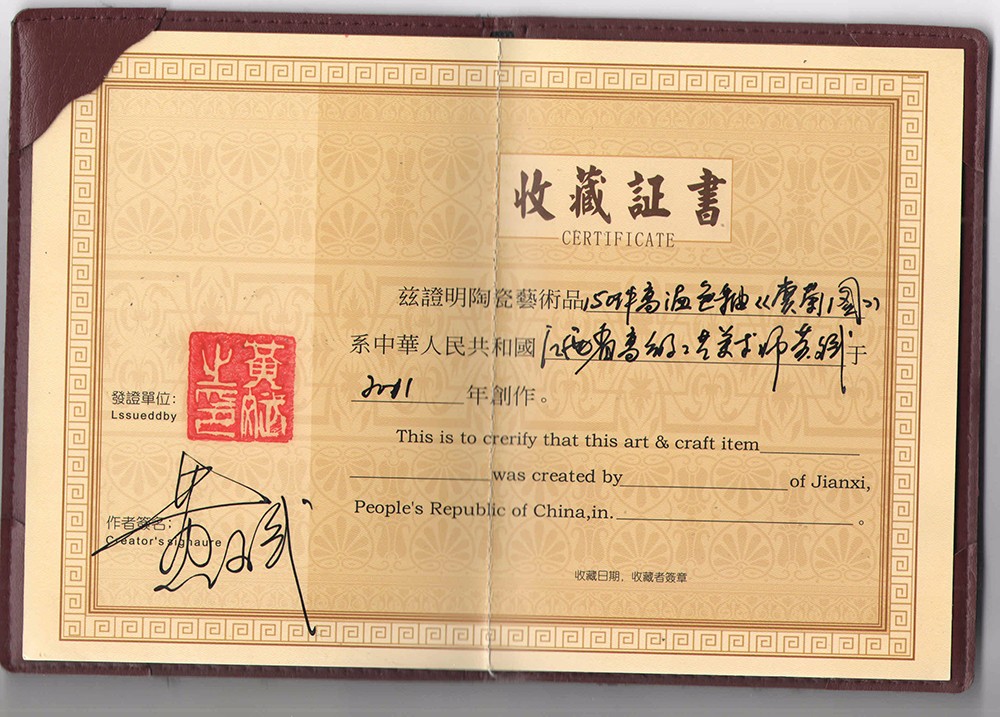 收藏証書
CERTIFICATE
兹證明陶瓷藝術品150件高温色釉《賞菊圖》
系中華人民共和國江西省高級工藝美术师黄斌于
2011年創作。
This is to crerify that this art & craft item
was created by of Jianxi,
People's Republic of China,in. 。
收藏日期,收藏者簽章
發證單位:
Lssueddby
黃斌之印
作者簽名:
Creator's signaure